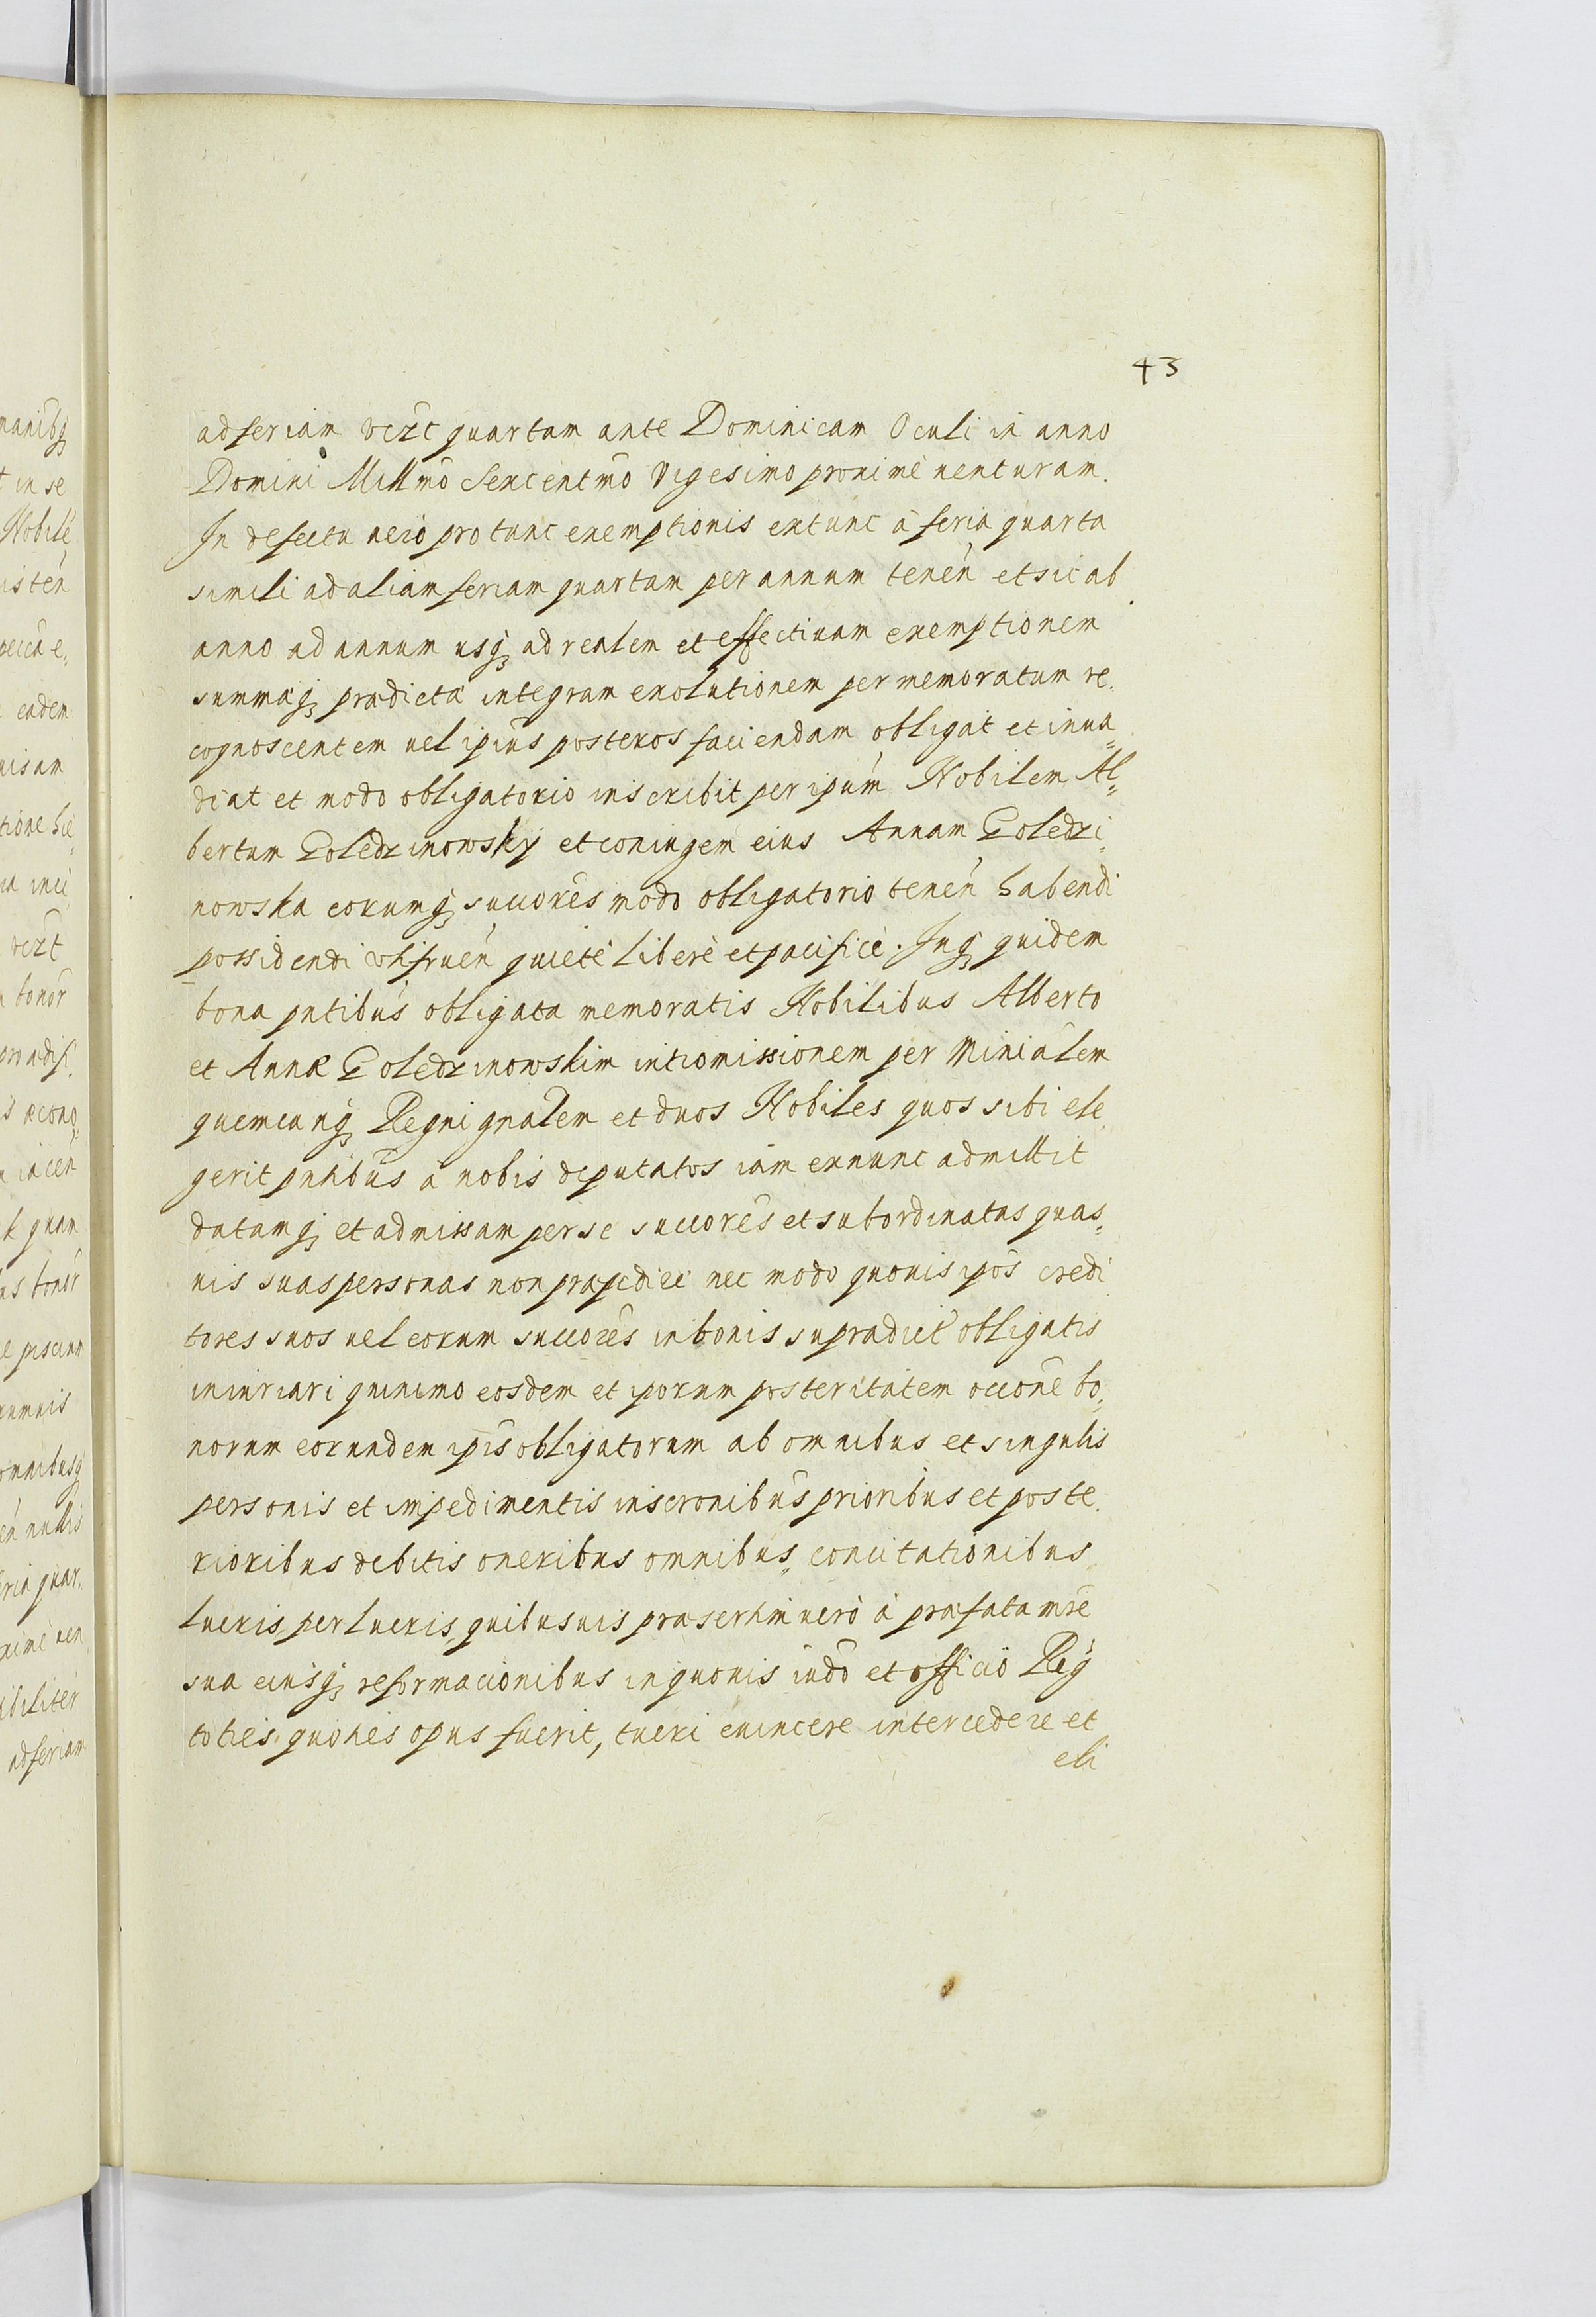 43
ad feriam vizt quartam ante Dominicam Oculi in anno
Domini Millmo Sexcentmo Vigesimo proximè uenturam.
In defectu uerò pro tunc exemptionis extunc à feria quarta
simili ad aliam feriam quartam per annum tenen̄ et sic ab
anno ad annum usq̨ ad realem et effectiuam exemptionem
summæq̨ prædictæ integram exolutionem per memoratum re,
cognoscentem uel ipius posteros faciendam obligat et inua,,
diat et modo obligatorio inscribit per ipum Nobilem Al,,
bertum Golędzinowsky et coniugem eius Annam Golędzi,,
nowska eorumq̨ succores modo obligatorio tenen̄ habendi
possidendi vtifruen̄ quiete liberè et pacificè. Inq̨ quidem
bona pntibus obligata memoratis Nobilibus Alberto
et Annæ Golędzinowskim intromissionem per Minialem
quemcunq̨ Regni gnalem et duos Nobiles quos sibi ele,
gerit pntibus à nobis deputatos iam exnunc admittit
datamq̨ et admissam per se succores et subordinatas quas,,
uis suas personas non præpedire nec modo quouis ipos credi
tores suos uel eorum succores in bonis supradict obligatis
iniuriari quinimo eosdem et iporum posteritatem occone bo,,
norum eorundem ipis obligatorum ab omnibus et singulis
personis et impedimentis inscronibus prioribus et poste,
rioribus debitis oneribus omnibus, concitationibus
lucris, perlucris, quibusuis præsertim uerò à præfata mre
sua eiusq̨ reformacionibus in quouis iudo et officio Reg
toties quoties opus fuerit, tueri euincere intercedere et
eli